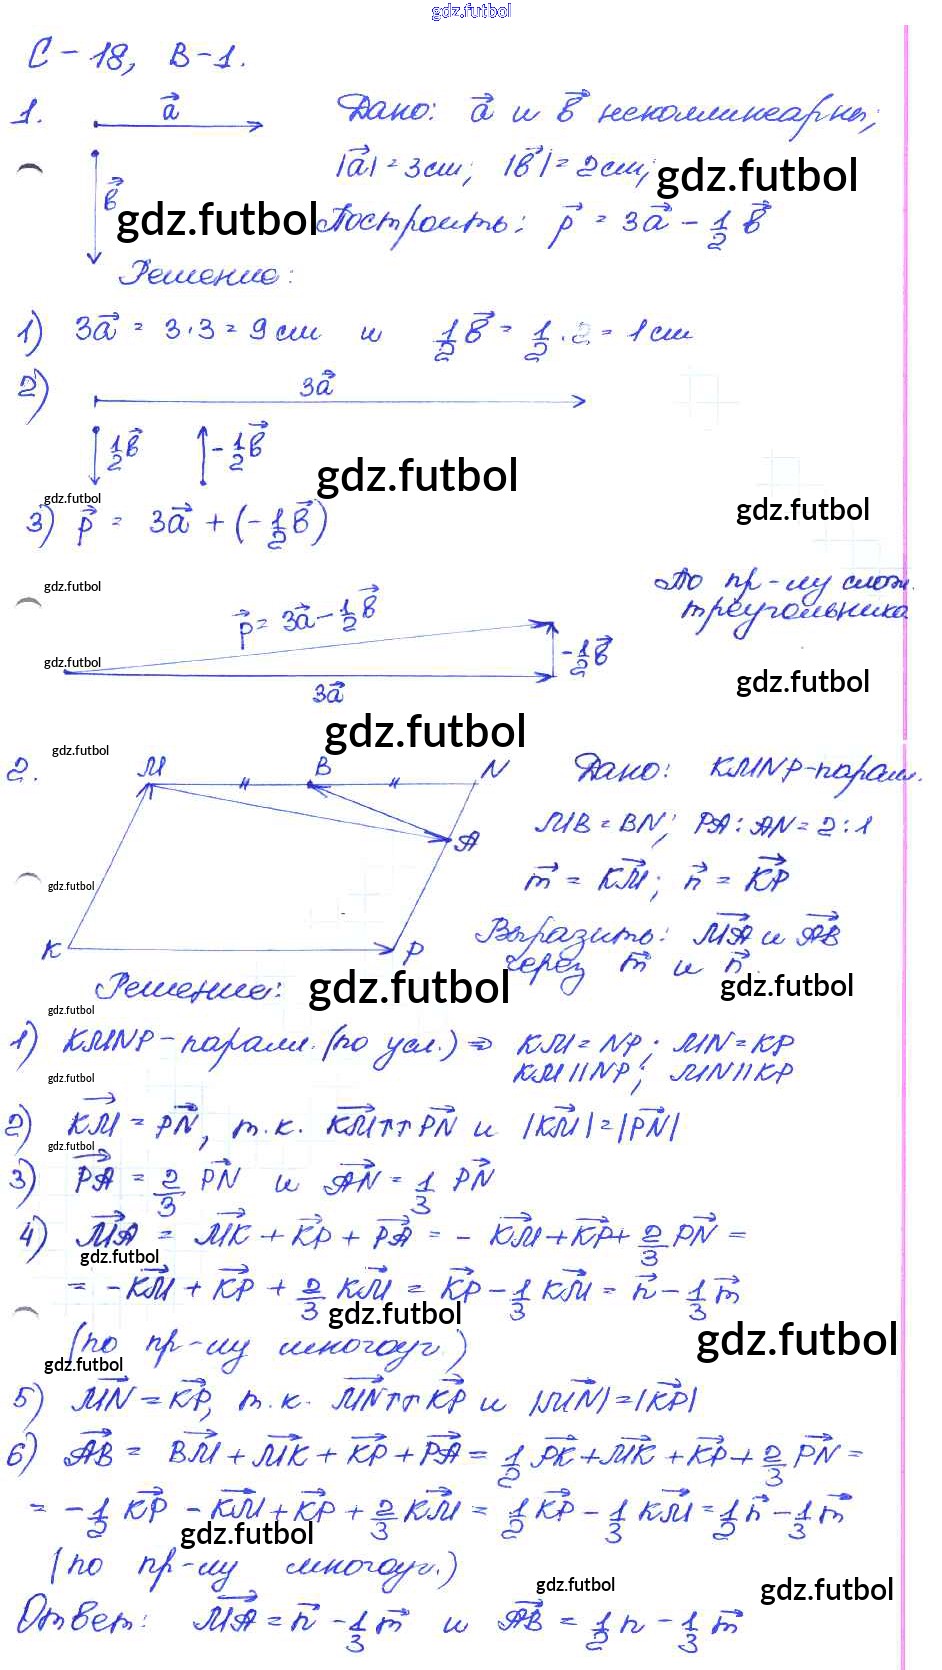 gdz.futbol
С-18, В-1.
1. a⃗ Дано: a⃗ и b⃗ неколлинеарны;
|a⃗| = 3см; |b⃗| = 2см; gdz.futbol
b⃗ gdz.futbol Построить: p⃗ = 3a⃗ - 1/2 b⃗
Решение:
1) 3a⃗ = 3·3 = 9см и 1/2 b⃗ = 1/2 · 2 = 1см
2) 3a⃗
1/2 b⃗ -1/2 b⃗ gdz.futbol
gdz.futbol gdz.futbol
3) p⃗ = 3a⃗ + (-1/2 b⃗)
gdz.futbol По пр-лу слож.
p⃗ = 3a⃗ - 1/2 b⃗ треугольника
gdz.futbol -1/2 b⃗
3a⃗ gdz.futbol
gdz.futbol
gdz.futbol
2. M B N Дано: KMNP-парал.
A MB = BN; PA : AN = 2 : 1
gdz.futbol m⃗ = KM⃗; n⃗ = KP⃗
K P Выразить: MA⃗ и AB⃗
через m⃗ и n⃗.
Решение: gdz.futbol gdz.futbol
gdz.futbol
1) KMNP-паралл. (по усл.) ⇒ KM = NP; MN = KP
KM || NP; MN || KP
gdz.futbol
2) KM⃗ = PN⃗, т.к. KM⃗↑↑PN⃗ и |KM⃗| = |PN⃗|
gdz.futbol
3) PA⃗ = 2/3 PN⃗ и AN⃗ = 1/3 PN⃗
4) MA⃗ = MK⃗ + KP⃗ + PA⃗ = - KM⃗ + KP⃗ + 2/3 PN⃗ =
gdz.futbol
= -KM⃗ + KP⃗ + 2/3 KM⃗ = KP⃗ - 1/3 KM⃗ = n⃗ - 1/3 m⃗
gdz.futbol gdz.futbol
(по пр-лу многоуг.)
gdz.futbol
5) MN⃗ = KP⃗, т.к. MN⃗↑↑KP⃗ и |MN⃗| = |KP⃗|
6) AB⃗ = BM⃗ + MK⃗ + KP⃗ + PA⃗ = 1/2 PK⃗ + MK⃗ + KP⃗ + 2/3 PN⃗ =
= -1/2 KP⃗ - KM⃗ + KP⃗ + 2/3 KM⃗ = 1/2 KP⃗ - 1/3 KM⃗ = 1/2 n⃗ - 1/3 m⃗
gdz.futbol
(по пр-лу многоуг.)
gdz.futbol gdz.futbol
Ответ: MA⃗ = n⃗ - 1/3 m⃗ и AB⃗ = 1/2 n - 1/3 m⃗